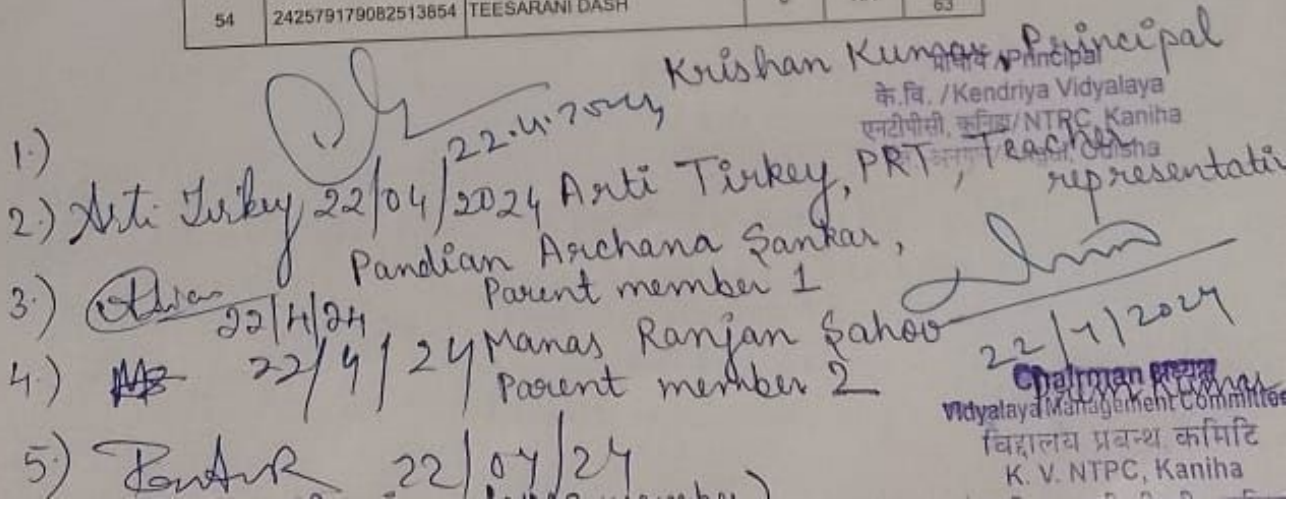 54 242579179082513654 TEESARANI DASH 63
1.) 22.4.2024 Krishan Kumar, Principal
प्राचार्य /Principal
के.वि. /Kendriya Vidyalaya
एनटीपीसी, कनिहा/NTPC, Kaniha
2.) Arti Tirkey 22/04/2024 Arti Tirkey, PRT, Teacher
representativ
3.) 22/4/24 Pandian Archana Sankar,
Parent member 1
4.) 22/4/24 Manas Ranjan Sahoo
Parent member 2
22/4/2024
Chairman अध्यक्ष
Vidyalaya Management Committee
विद्यालय प्रबन्ध कमिटि
K. V. NTPC, Kaniha
5.) 22/04/24